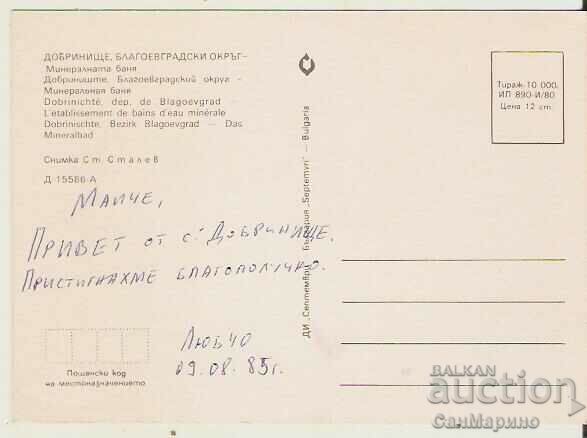 ДОБРИНИЩЕ, БЛАГОЕВГРАДСКИ ОКРЪГ-
Минералната баня
Добриниште, Благоевградский округ -
Минеральная баня
Dobrinichté, dep. de Blagoevgrad -
L'etablissement de bains d'eau minérale
Dobrinischte, Bezirk Blagoevgrad - Das
Mineralbad
Снимка Ст. Сталев
Д 15586-А
Майче,
Привет от с. Добринище.
Пристигнахме благополучно.
Любчо
09.08.85г.
Пощенски код
на местоназначението
ДИ „Септември“ България „Septemvri“ - Bulgaria
Тираж 10 000.
ИП 890-И/80
Цена 12 ст.
BALKAN
auction
СанМарино